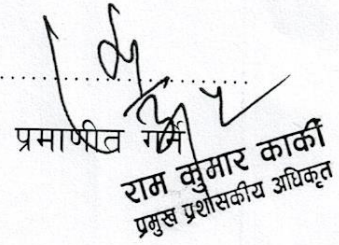 प्रमाणीत गर्ने
राम कुमार कार्की
प्रमुख प्रशासकीय अधिकृत